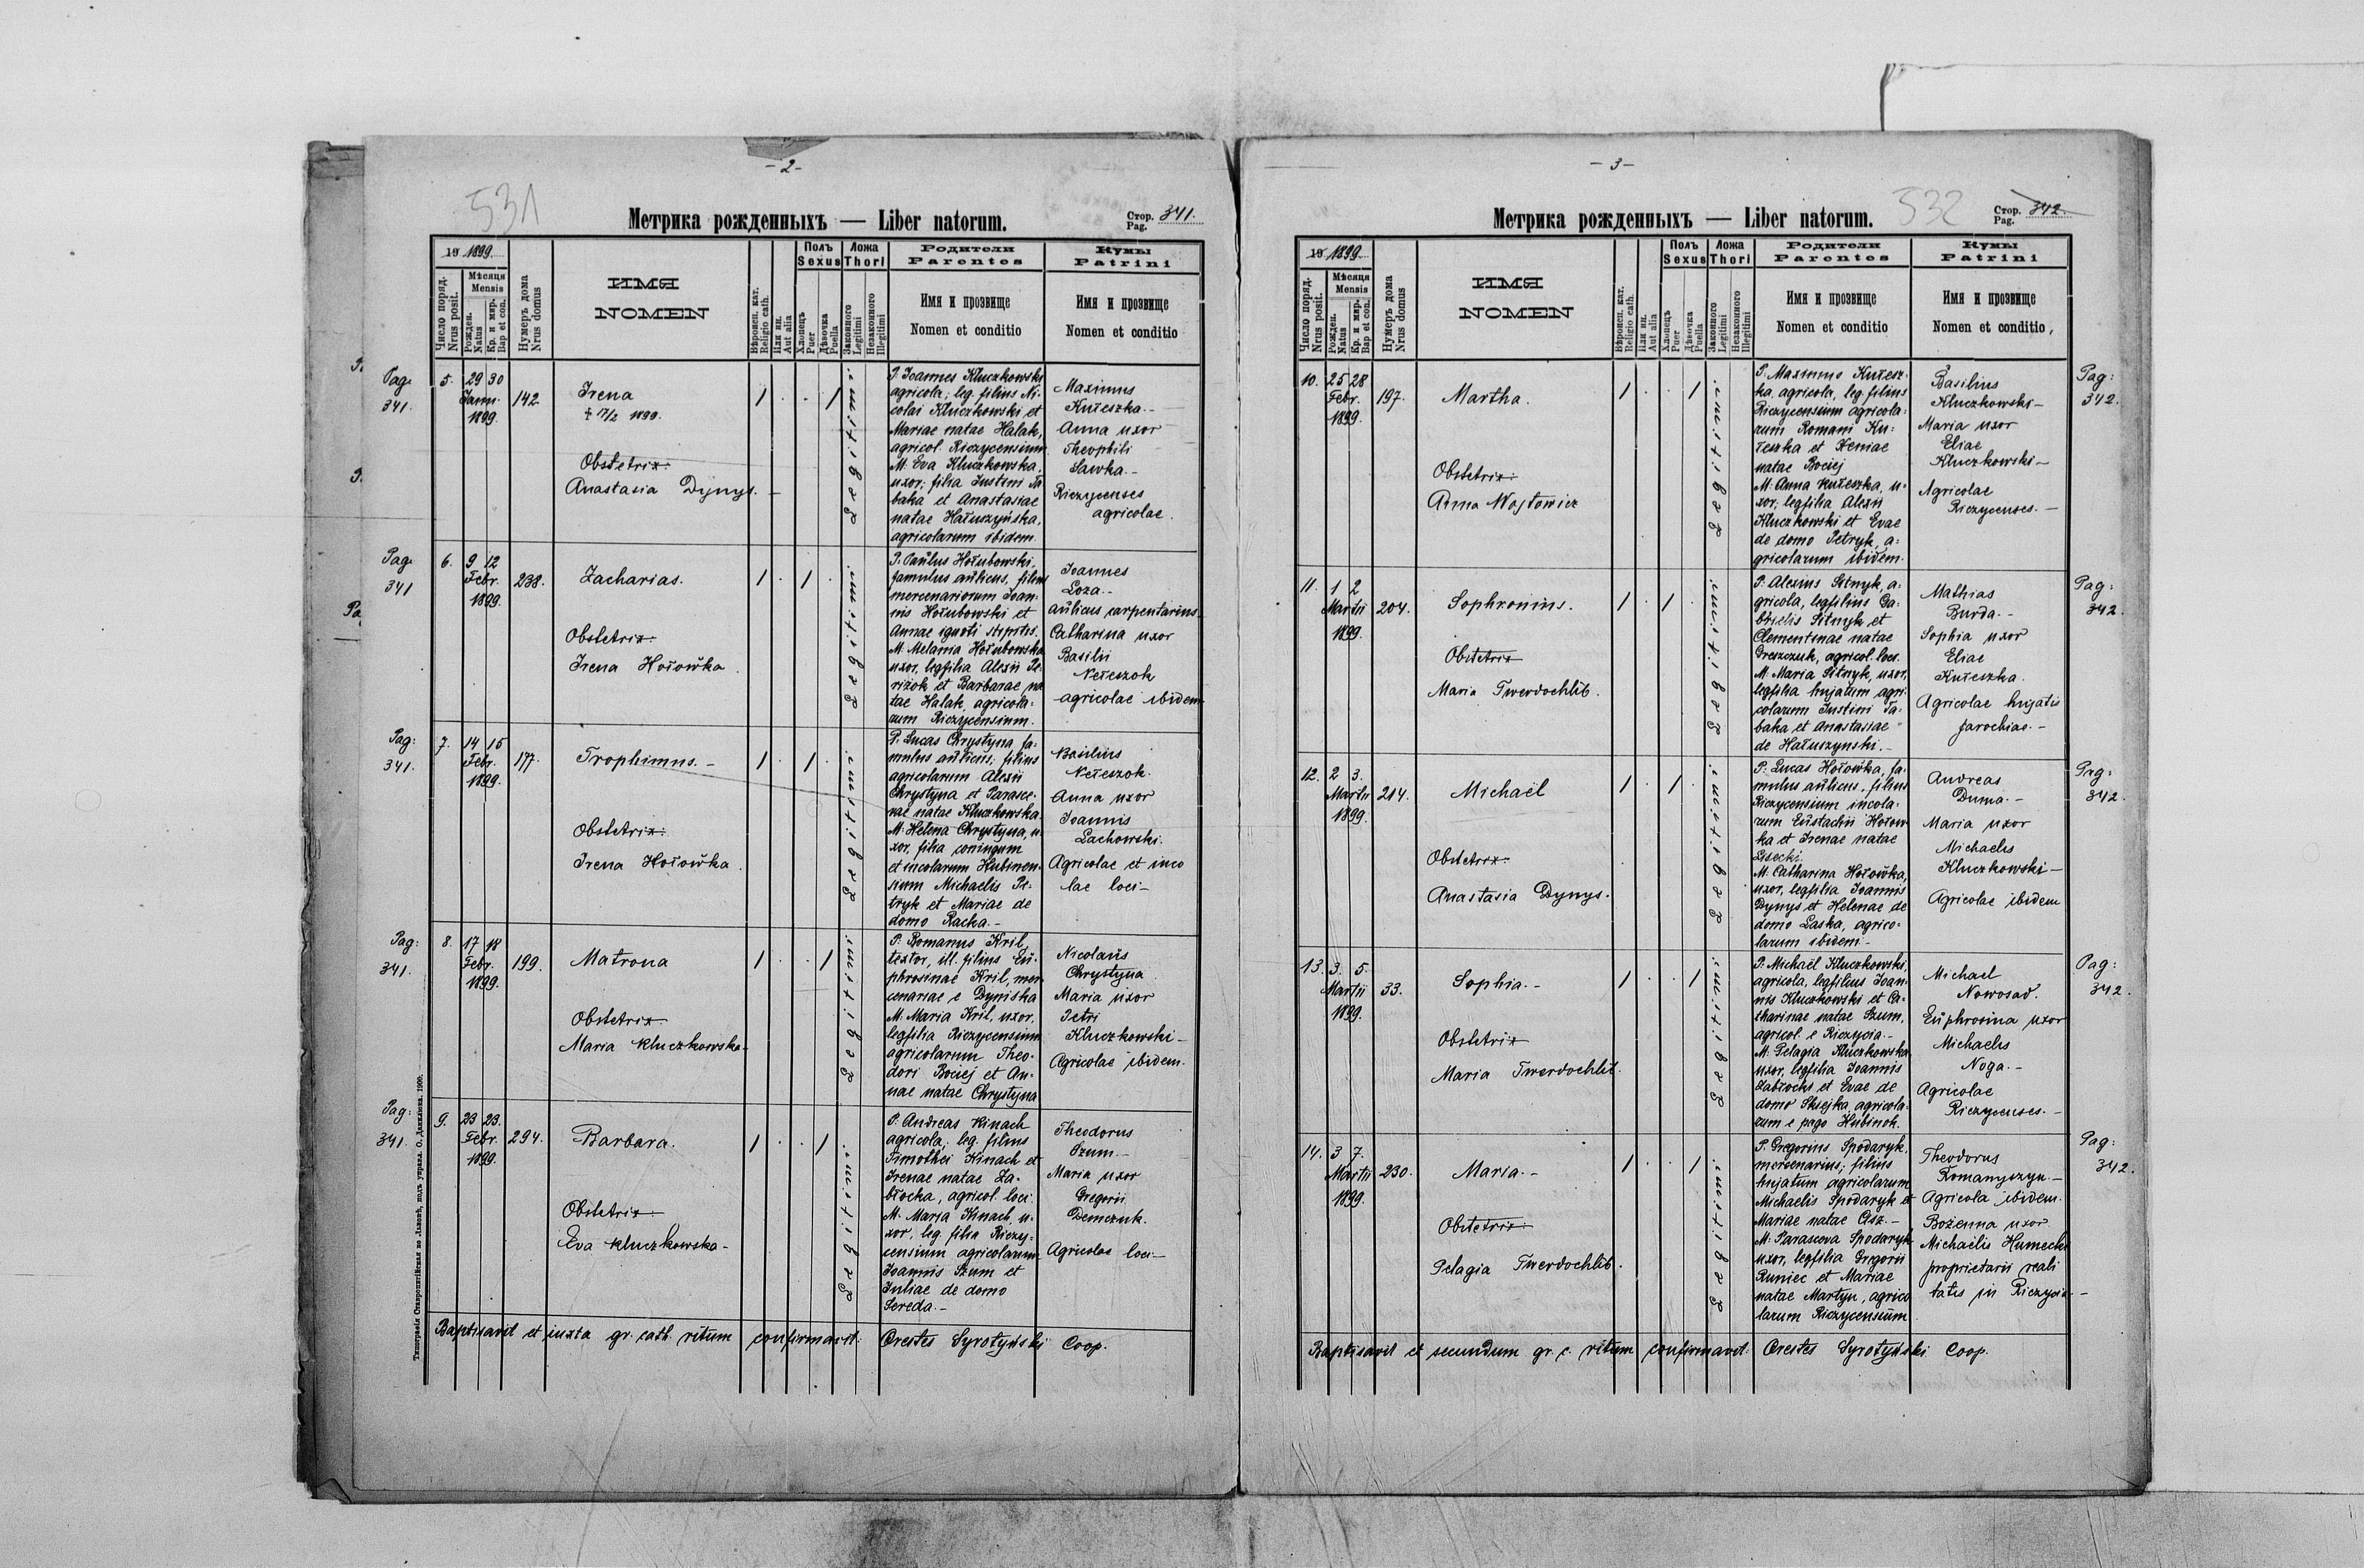 - 2 -
531
Метрика рожденныхъ — Liber natorum.
Стор. Pag. 341.
19 1899.
Число поряд. Nrus posit.
Мѣсяця Mensis
Рожден. Natus
Кр. и мир. Bap et con.
Нумеръ дома Nrus domus
ИМЯ
NOMEN
Вѣроисп. кат. Religio cath.
Или ин. Aut alia
Полъ Sexus
Хлопецъ Puer
Дѣвочка Puella
Ложа Thori
Законного Legitimi
Незаконного Illegitimi
Родители
Parentes
Имя и прозвище
Nomen et conditio
Кумы
Patrini
Имя и прозвище
Nomen et conditio
Pag. 341.
5. 29 30 Janu. 1899. 142.
Irena
† 17/2 1899.
Obstetrix:
Anastasia Dynys. -
Legitimi
P. Joannes Kluczkowski
agricola; leg. filius Ni-
colai Kluczkowski et
Mariae natae Halak,
agricol. Riczycensium
M. Eva Kluczkowska,
uxor; filia Justini Ta
baka et Anastasiae
natae Hałuszyńska,
agricolarum ibidem.
Maximus
Kułeszka.-
Anna uxor
Theophili
Sawka.-
Riczycenses
agricolae.
Pag. 341
6. 9 12 Febr. 1899. 238.
Zacharias.
Obstetrix:
Irena Hołowka.
Legitimi
P. Paulus Hołubowski,
famulus aulicus, filius
mercenariorum Joan-
nis Hołubowski et
Annae ignoti stipitis.
M. Melania Hołubowska
uxor, legfilia Alexii Pe-
rizok et Barbarae na
tae Halak, agricola-
rum Riczycensium.
Joannes
Loza.-
aulicus carpentarius
Catharina uxor
Basilii
Nełeszok
agricolae ibidem
Pag: 341.
7. 14 15 Febr. 1899. 177.
Trophimus. -
Obstetrix:
Irena Hołowka.
Legitimi
P. Lucas Chrystyna fa-
mulus aulicus; filius
agricolarum Alexii
Chrystyna et Parasce-
vae natae Kluczkowska.
M. Helena Chrystyna, u-
xor, filia conjugum
et incolarum Hubinen-
sium Michaelis Pe-
tryk et Mariae de
domo Racka. -
Basilius
Nełeszok.
Anna uxor
Joannis
Lachowski.
Agricolae et inco
lae loci-
Pag: 341.
8. 17 18 Febr. 1899. 199.
Matrona
Obstetrix
Maria Kluczkowska-
Legitimi
P. Romanus Kril,
textor, ill. filius Eu-
phrosinae Kril, mer-
cenariae e Dyniska
M. Maria Kril, uxor,
legfilia Riczycensium
agricolarum Theo-
dori Bociej et An-
nae natae Chrystyna
Nicolaus
Chrystyna
Maria uxor
Petri
Kluczkowski-
Agricolae ibidem.
Pag: 341.
9. 23 23. Febr. 1899. 294.
Barbara.
Obstetrix
Eva Kluczkowska-
Legitimi
P. Andreas Kinach
agricola; leg. filius
Timothei Kinach et
Irenae natae Za-
błocka, agricol. loci.
M. Maria Kinach, u-
xor, leg. filia Riczy-
censium agricolarum
Joannis Szum et
Juliae de domo
Sereda.-
Theodorus
Szum.-
Maria uxor
Gregorii
Demczuk.
Agricolae loci-
Baptisavit et juxta gr. cath. ritum confirmavit: Orestes Syrotyński Coop.
Типографія Ставропигійская во Львовѣ, подъ управл. О. Данилюка. 1900.
- 3 -
532
Метрика рожденныхъ — Liber natorum.
Стор. Pag. 342.
19 1899.
Число поряд. Nrus posit.
Мѣсяця Mensis
Рожден. Natus
Кр. и мир. Bap et con.
Нумеръ дома Nrus domus
ИМЯ
NOMEN
Вѣроисп. кат. Religio cath.
Или ин. Aut alia
Полъ Sexus
Хлопецъ Puer
Дѣвочка Puella
Ложа Thori
Законного Legitimi
Незаконного Illegitimi
Родители
Parentes
Имя и прозвище
Nomen et conditio
Кумы
Patrini
Имя и прозвище
Nomen et conditio
10. 25 28 Febr. 1899. 197.
Martha.
Obstetrix:
Anna Wojtowicz
Legitimi
P. Maximus Kułesz-
ka, agricola, leg. filius
Riczycensium agricola-
rum Romani Ku-
łeszka et Xeniae
natae Bociej
M. Anna Kułeszka, u-
xor, legfilia Alexii
Kluczkowski et Evae
de domo Petryk, a-
gricolarum ibidem.
Basilius
Kluczkowski-
Maria uxor
Eliae
Kluczkowski-
Agricolae
Riczycenses. -
Pag: 342.
11. 1 2 Martii 1899. 204.
Sophronius.
Obstetrix
Maria Twerdochlib.
Legitimi
P. Alexius Sitnyk, a-
gricola, legfilius Ga-
brielis Sitnyk et
Clementinae natae
Greszczuk, agricol. loci.
M. Maria Sitnyk, uxor,
legfilia hujatum agri-
colarum Justini Ta-
baka et Anastasiae
de Hałuszynski. -
Mathias
Burda. -
Sophia uxor
Eliae
Kułeszka.
Agricolae hujatis
parochiae. -
Pag: 342.
12. 2 3. Martii 1899. 214.
Michaël
Obstetrix.
Anastasia Dynys.
Legitimi
P. Lucas Hołowka, fa-
mulus aulicus, filius
Riczycensium incola-
rum Eustachii Hołow-
ka et Irenae natae
Lisecki.
M. Catharina Hołowka,
uxor, legfilia Joannis
Dynys et Helenae de
domo Laska, agrico-
larum ibidem-
Andreas
Duma. -
Maria uxor
Michaelis
Kluczkowski-
Agricolae ibidem
Pag: 342.
13. 3. 5. Martii 1899. 33.
Sophia.-
Obstetrix
Maria Twerdochlib.
Legitimi
P. Michaël Kluczkowski,
agricola, legfilius Joan-
nis Kluczkowski et Ca-
tharinae natae Szum,
agricol. e Riczycia. -
M. Pelagia Kluczkowska
uxor, legfilia Joannis
Zabłocki et Evae de
domo Skejka, agricola-
rum e pago Hubinok.
Michael
Nowosad.
Euphrosina uxor
Michaelis
Noga. -
Agricolae
Riczycenses. -
Pag: 342.
14. 3 7. Martii 1899. 230.
Maria. -
Obstetrix
Pelagia Twerdochlib.
Legitimi
P. Gregorius Spodaryk,
mercenarius; filius
hujatum agricolarum
Michaelis Spodaryk et
Mariae natae Cisz. -
M. Parasceva Spodaryk
uxor, legfilia Gregorii
Runiec et Mariae
natae Martyn, agrico
larum Riczycensium
Theodorus
Romanyszyn. -
Agricola ibidem.
Bożenna uxor
Michaelis Humecki
proprietarii reali
tatis in Riczycia -
Pag: 342.
Baptisavit et secundum gr. c. ritum confirmavit: Orestes Syrotyński Coop.